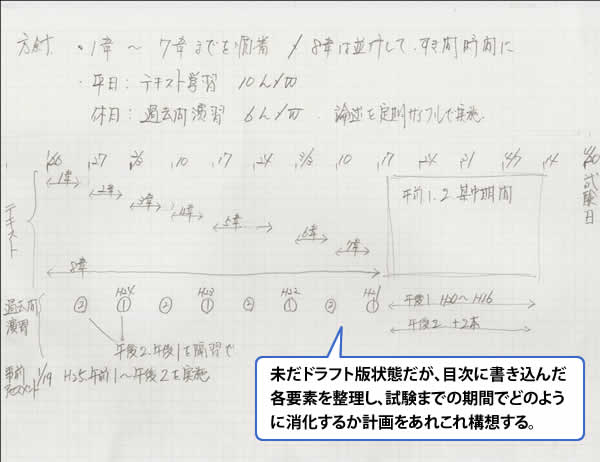 方針 ・1章 ～ 7章までを順番 / 8章は並行して、すき間時間に
・平日: テキスト学習 10h/w
休日: 過去問演習 6h/w ・論述を定期サイクルで実施
27 2/3 10 17 24 3/3 10 17 24 31 4/7 14 試験日
テキスト
1章
2章
3章
4章
5章
6章
7章
8章
午前1.2 集中期間
過去問演習
H24 H23 H22 H21
② ① ② ① ② ① ② ①
午後1 H20～H16
午後2 +2本
午後2、午後1を隔週で
事前アセスメント 1/19 H25午前1～午後2を実施
未だドラフト版状態だが、目次に書き込んだ
各要素を整理し、試験までの期間でどのよう
に消化するか計画をあれこれ構想する。